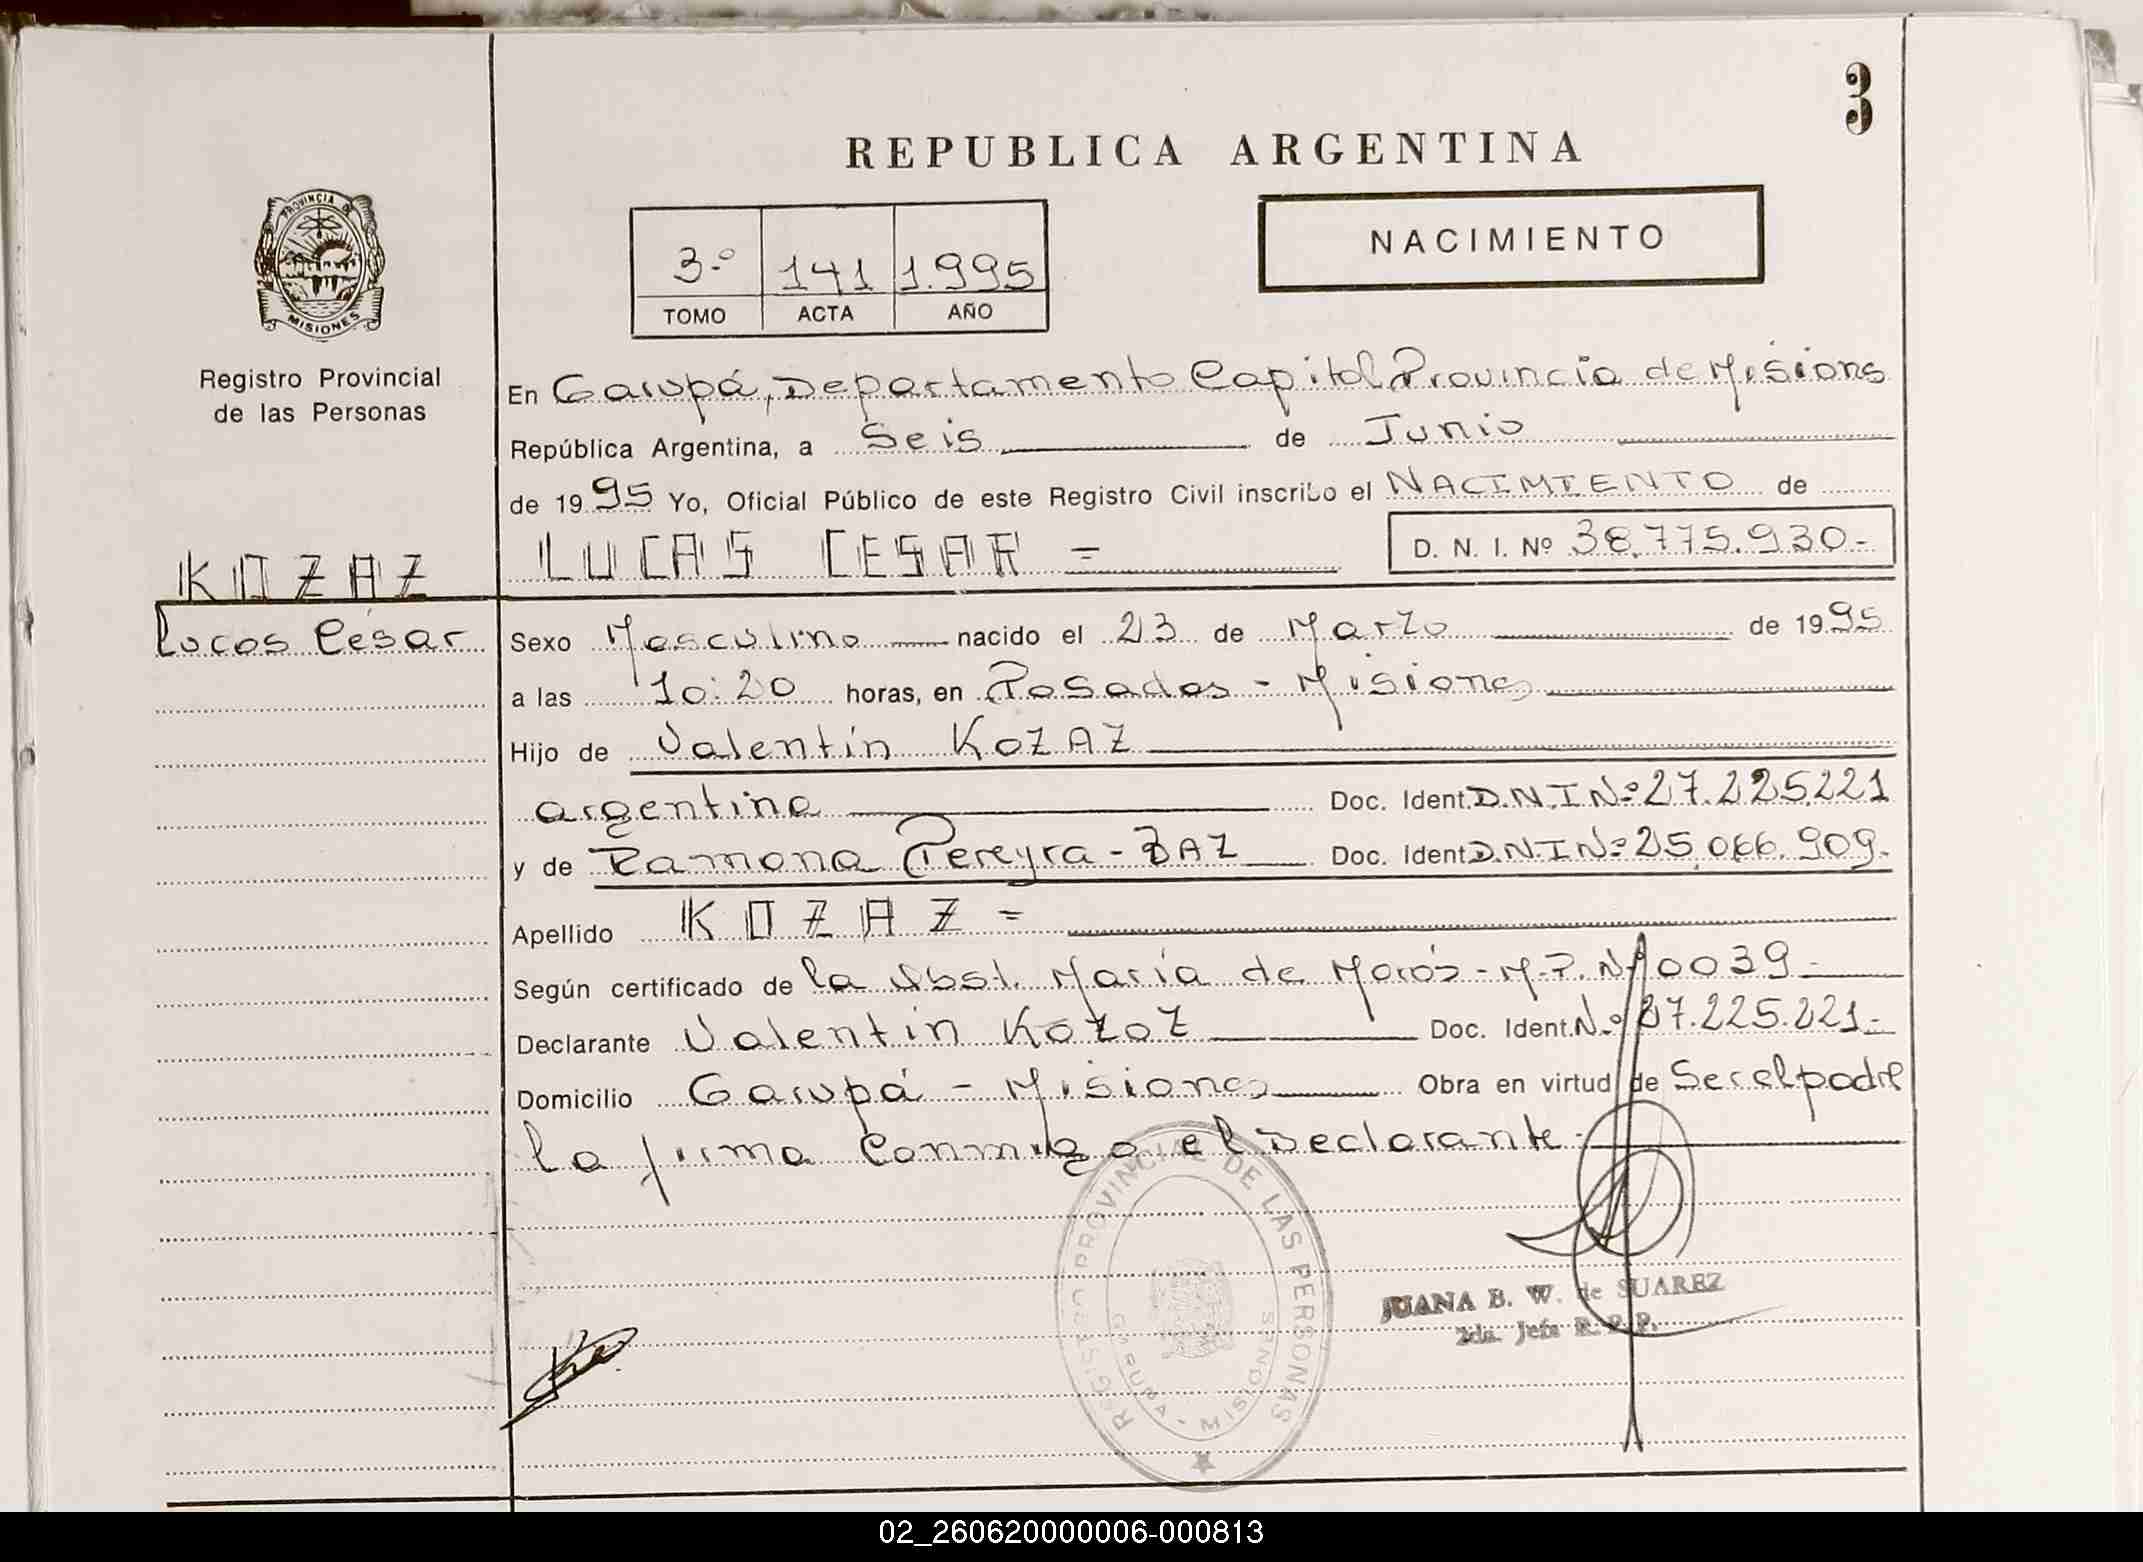 3
REPUBLICA ARGENTINA
PROVINCIA DE
MISIONES
3.º 141 1.995
TOMO ACTA AÑO
NACIMIENTO
Registro Provincial
de las Personas
En Garupá, Departamento Capital Provincia de Misiones
República Argentina, a Seis de Junio
de 1995 Yo, Oficial Público de este Registro Civil inscribo el NACIMIENTO de
KOZAZ LUCAS CESAR = D. N. I. Nº 38.775.930.-
Lucas César Sexo Masculino nacido el 23 de Marzo de 1995
a las 10:20 horas, en Posadas - Misiones
Hijo de Valentín KOZAZ
argentina Doc. Ident. D.N.I Nº 27.225.221
y de Ramona Pereyra - BAZ Doc. Ident D.N.I Nº 25.066.909.
Apellido KOZAZ =
Según certificado de la Obst. María de Morós - M.P. Nº 0039 -
Declarante Valentín Kozaz Doc. Ident. Nº 27.225.221.-
Domicilio Garupá - Misiones Obra en virtud de Ser el padre
la firma Conmigo el Declarante.
REGISTRO PROVINCIAL DE LAS PERSONAS
GARUPA - MISIONES
JUANA B. W. de SUAREZ
2da. Jefa R. P. P.
02_260620000006-000813